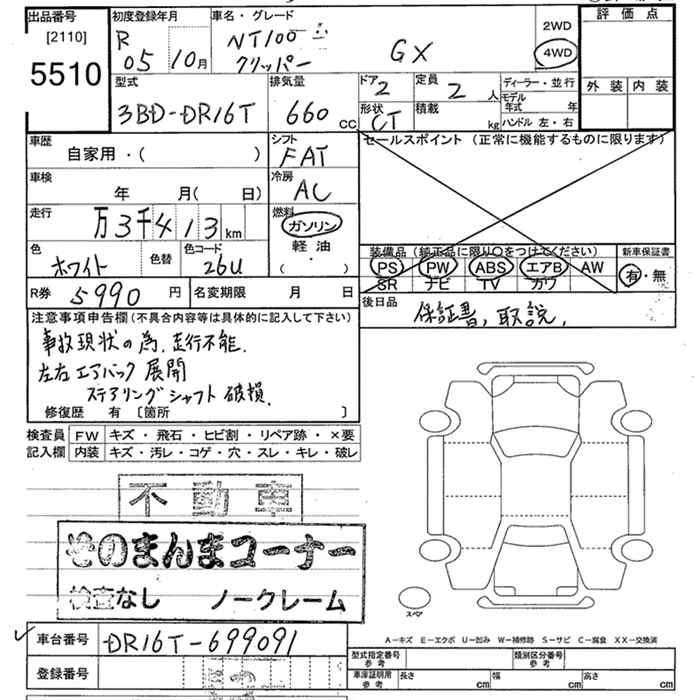 出品番号
[2110]
5510
初度登録年月
R 05 10月
車名・グレード
NT100
クリッパー
GX
2WD
4WD
評価点
外装 内装
型式
3BD-DR16T
排気量
660 CC
ドア 2
形状 CT
定員 2 人
積載 kg
ディーラー・並行
モデル年式 年
ハンドル 左・右
車歴
自家用・( )
シフト
FAT
セールスポイント (正常に機能するものに限ります)
車検
年 月( 日)
冷房
AC
走行
万3千413km
燃料
ガソリン
軽油
( ・ )
色
ホワイト
色替
色コード
26U
装備品 (純正品に限り○をつけてください)
PS PW ABS エアB AW
SR ナビ TV カワ
新車保証書
有・無
R券 5990円
名変期限 月 日
後日品
保証書, 取説,
注意事項申告欄(不具合内容等は具体的に記入して下さい)
事故現状の為、走行不能.
左右エアバック展開
ステアリングシャフト破損.
修復歴 有 〔箇所 〕
検査員記入欄
FW キズ・飛石・ヒビ割・リペア跡・×要
内装 キズ・汚レ・コゲ・穴・スレ・キレ・破レ
不動車
そのまんまコーナー
検査なし ノークレーム
スペア
A-キズ E-エクボ U-凹み W-補修跡 S-サビ C-腐食 XX-交換済
車台番号
DR16T-699091
登録番号
型式指定番号 参考
類別区分番号 参考
車庫証明用 参考
長さ cm 幅 cm 高さ cm